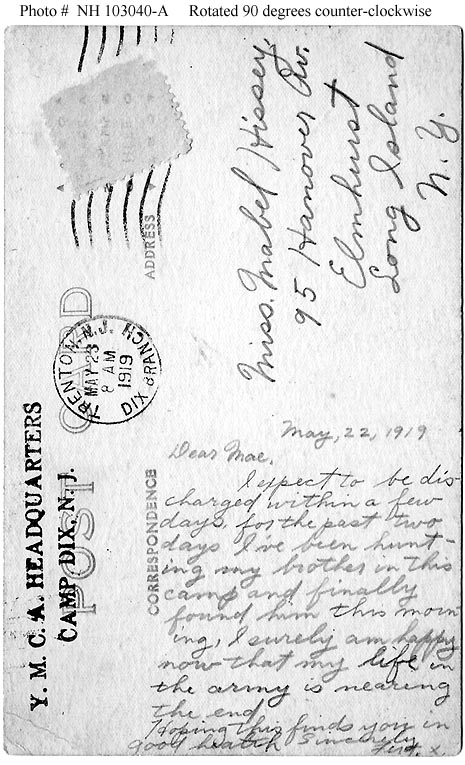 Photo # NH 103040-A Rotated 90 degrees counter-clockwise
Miss. Mabel Hissey.
95 Hanover Av.
Elmhurst
Long Island
N. Y.
ADDRESS
POST CARD
TRENTON, N.J.
MAY 23
8 AM
1919
DIX BRANCH
Y. M. C. A. HEADQUARTERS
CAMP DIX, N. J.
CORRESPONDENCE
May, 22, 1919
Dear Mae.
I expect to be dis-
charged within a few
days, for the past two
days I've been hunt-
ing my brother in this
camp and finally
found him this morn
ing, I surely am happy
now that my life in
the army is nearing
the end.
Hoping this finds you in
good health Sincerely